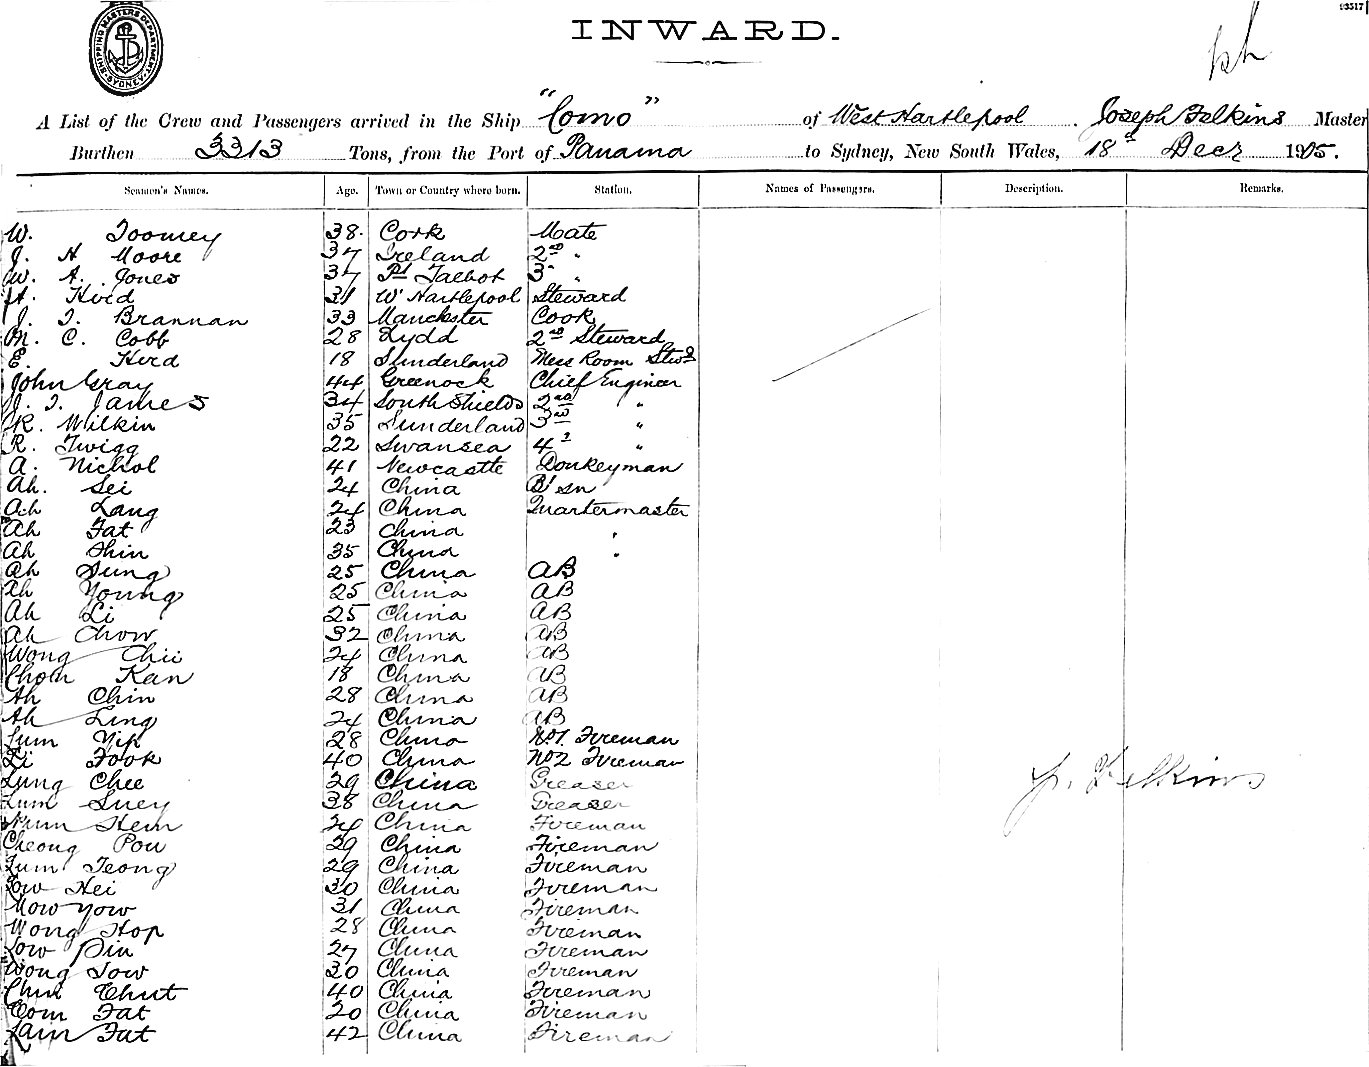 93517
INWARD.
SHIPPING MASTERS DEPARTMENT SYDNEY
A List of the Crew and Passengers arrived in the Ship "Como" of West Hartlepool. Joseph Felkins Master
Burthen 3313 Tons, from the Port of Panama to Sydney, New South Wales, 18th Decr 1905.
Seamen's Names. Age. Town or Country where born. Station. Names of Passengers. Description. Remarks.
W. Toomey 38. Cork Mate
J. H Moore 37 Ireland 2nd "
W. A. Jones 37 Pt Talbot 3 "
H. Hird 31 W Hartlepool Steward
J. T. Brannan 33 Manchester Cook
M. C. Cobb 28 Lydd 2nd Steward
E. Hird 18 Sunderland Mess Room Stwd
John Gray 44 Greenock Chief Engineer
J. T. James 34 South Shields 2nd "
R. Wilkin 35 Sunderland 3rd "
R. Twigg 22 Swansea 4 "
A. Nichol 41 Newcastle Donkeyman
Ah. Sei 24 China B'sn
Ah Lang 24 China Quartermaster
Ah Fat 23 China "
Ah Shin 35 China "
Ah Sung 25 China AB
Ah Young 25 China AB
Ah Li 25 China AB
Ah Chow 32 China AB
Wong Chii 24 China AB
Chom Kan 18 China AB
Ah Chin 28 China AB
Ah Ling 24 China AB
Lum Yip 28 China No1. Fireman
Li Fook 40 China No2 Fireman
Lung Chee 29 China Greaser
Lum Suey 38 China Greaser
Hem 24 China Fireman
Cheong Pow 29 China Fireman
Lum Teong 29 China Fireman
Low Hei 30 China Fireman
Mow Yow 31 China Fireman
Wong Hop 28 China Fireman
Low Pin 27 China Fireman
Wong Sow 30 China Fireman
Chut 40 China Fireman
Com Fat 20 China Fireman
Lam Fat 42 China Fireman
J. Felkins